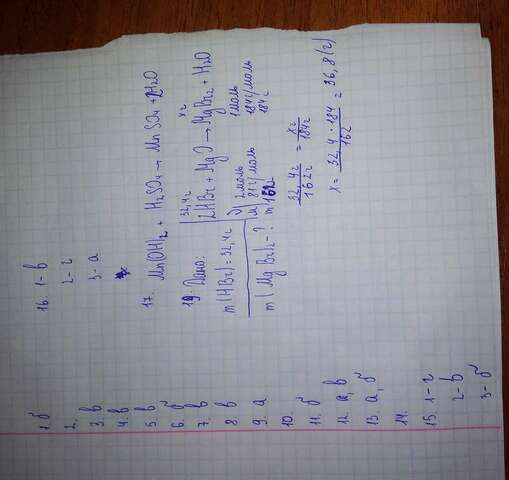 1. б
2.
3. в
4. в
5. в
6. б
7. в
8. в
9. а
10.
11. б
12. а, в
13. а, б
14.
15. 1-г
2-в
3-б
16. 1-в
2-г
3-а
17. Mn(OH)2 + H2SO4 → MnSO4 + 2H2O
19. Дано:
m(HBr) = 32,4г
m(MgBr)2 - ?
32,4г xг
2HBr + MgO → MgBr2 + H2O
ν 2моль 1моль
M 81г/моль 184г/моль
m 162г 184г
32,4г / 162г = xг / 184г
x = 32,4 · 184 / 162 = 36,8(г)